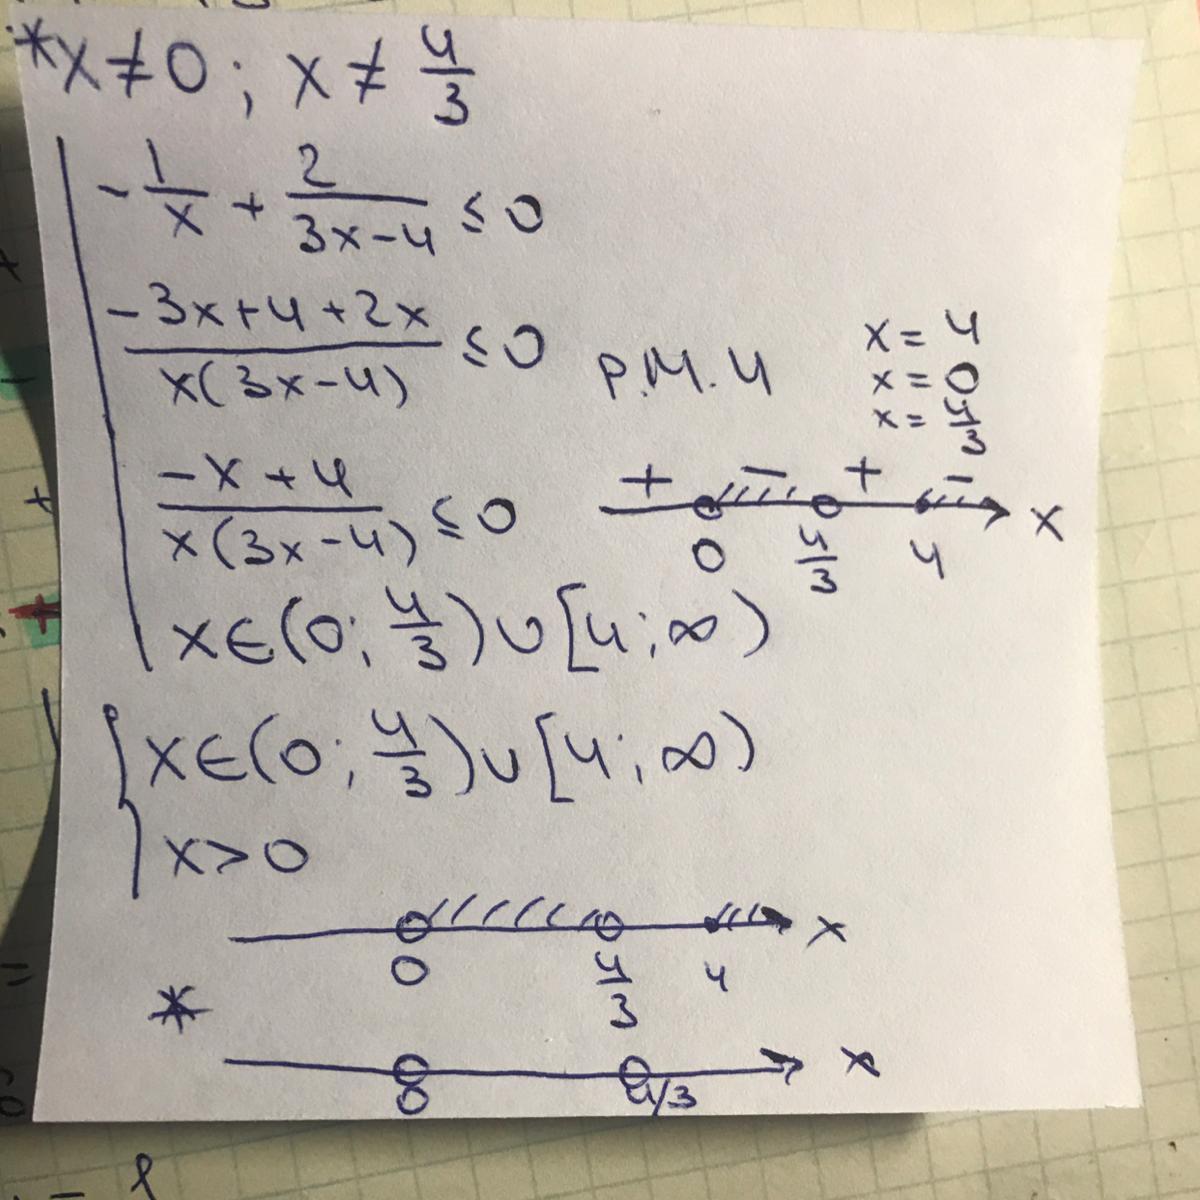 *x≠0; x≠4/3
-1/x + 2/(3x-4) ≤ 0
(-3x+4+2x)/(x(3x-4)) ≤ 0 р.м.и x=4
x=0
x=4/3
(-x+4)/(x(3x-4)) ≤ 0 + - + - x
0 4/3 4
x∈(0; 4/3)∪[4; ∞)
{x∈(0; 4/3)∪[4; ∞)
x>0
x
0 4/3 4
*
x
0 4/3